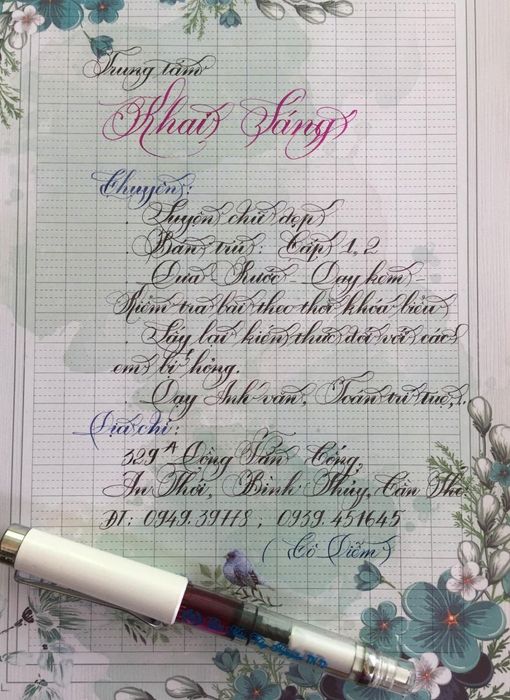 Trung tâm
Khai Sáng
Chuyên:
. Luyện chữ đẹp
. Bán trú : Cấp 1, 2
. Đưa - Rước - Dạy kèm -
Kiểm tra bài theo thời khóa biểu
. Lấy lại kiến thức đối với các
em bị hỏng.
. Dạy Anh văn, Toán trí tuệ,..
Địa chỉ:
329 A Đồng Văn Cống,
An Thới, Bình Thủy, Cần Thơ.
ĐT: 0949.39778 , 0939.451645
( Cô Diễm )